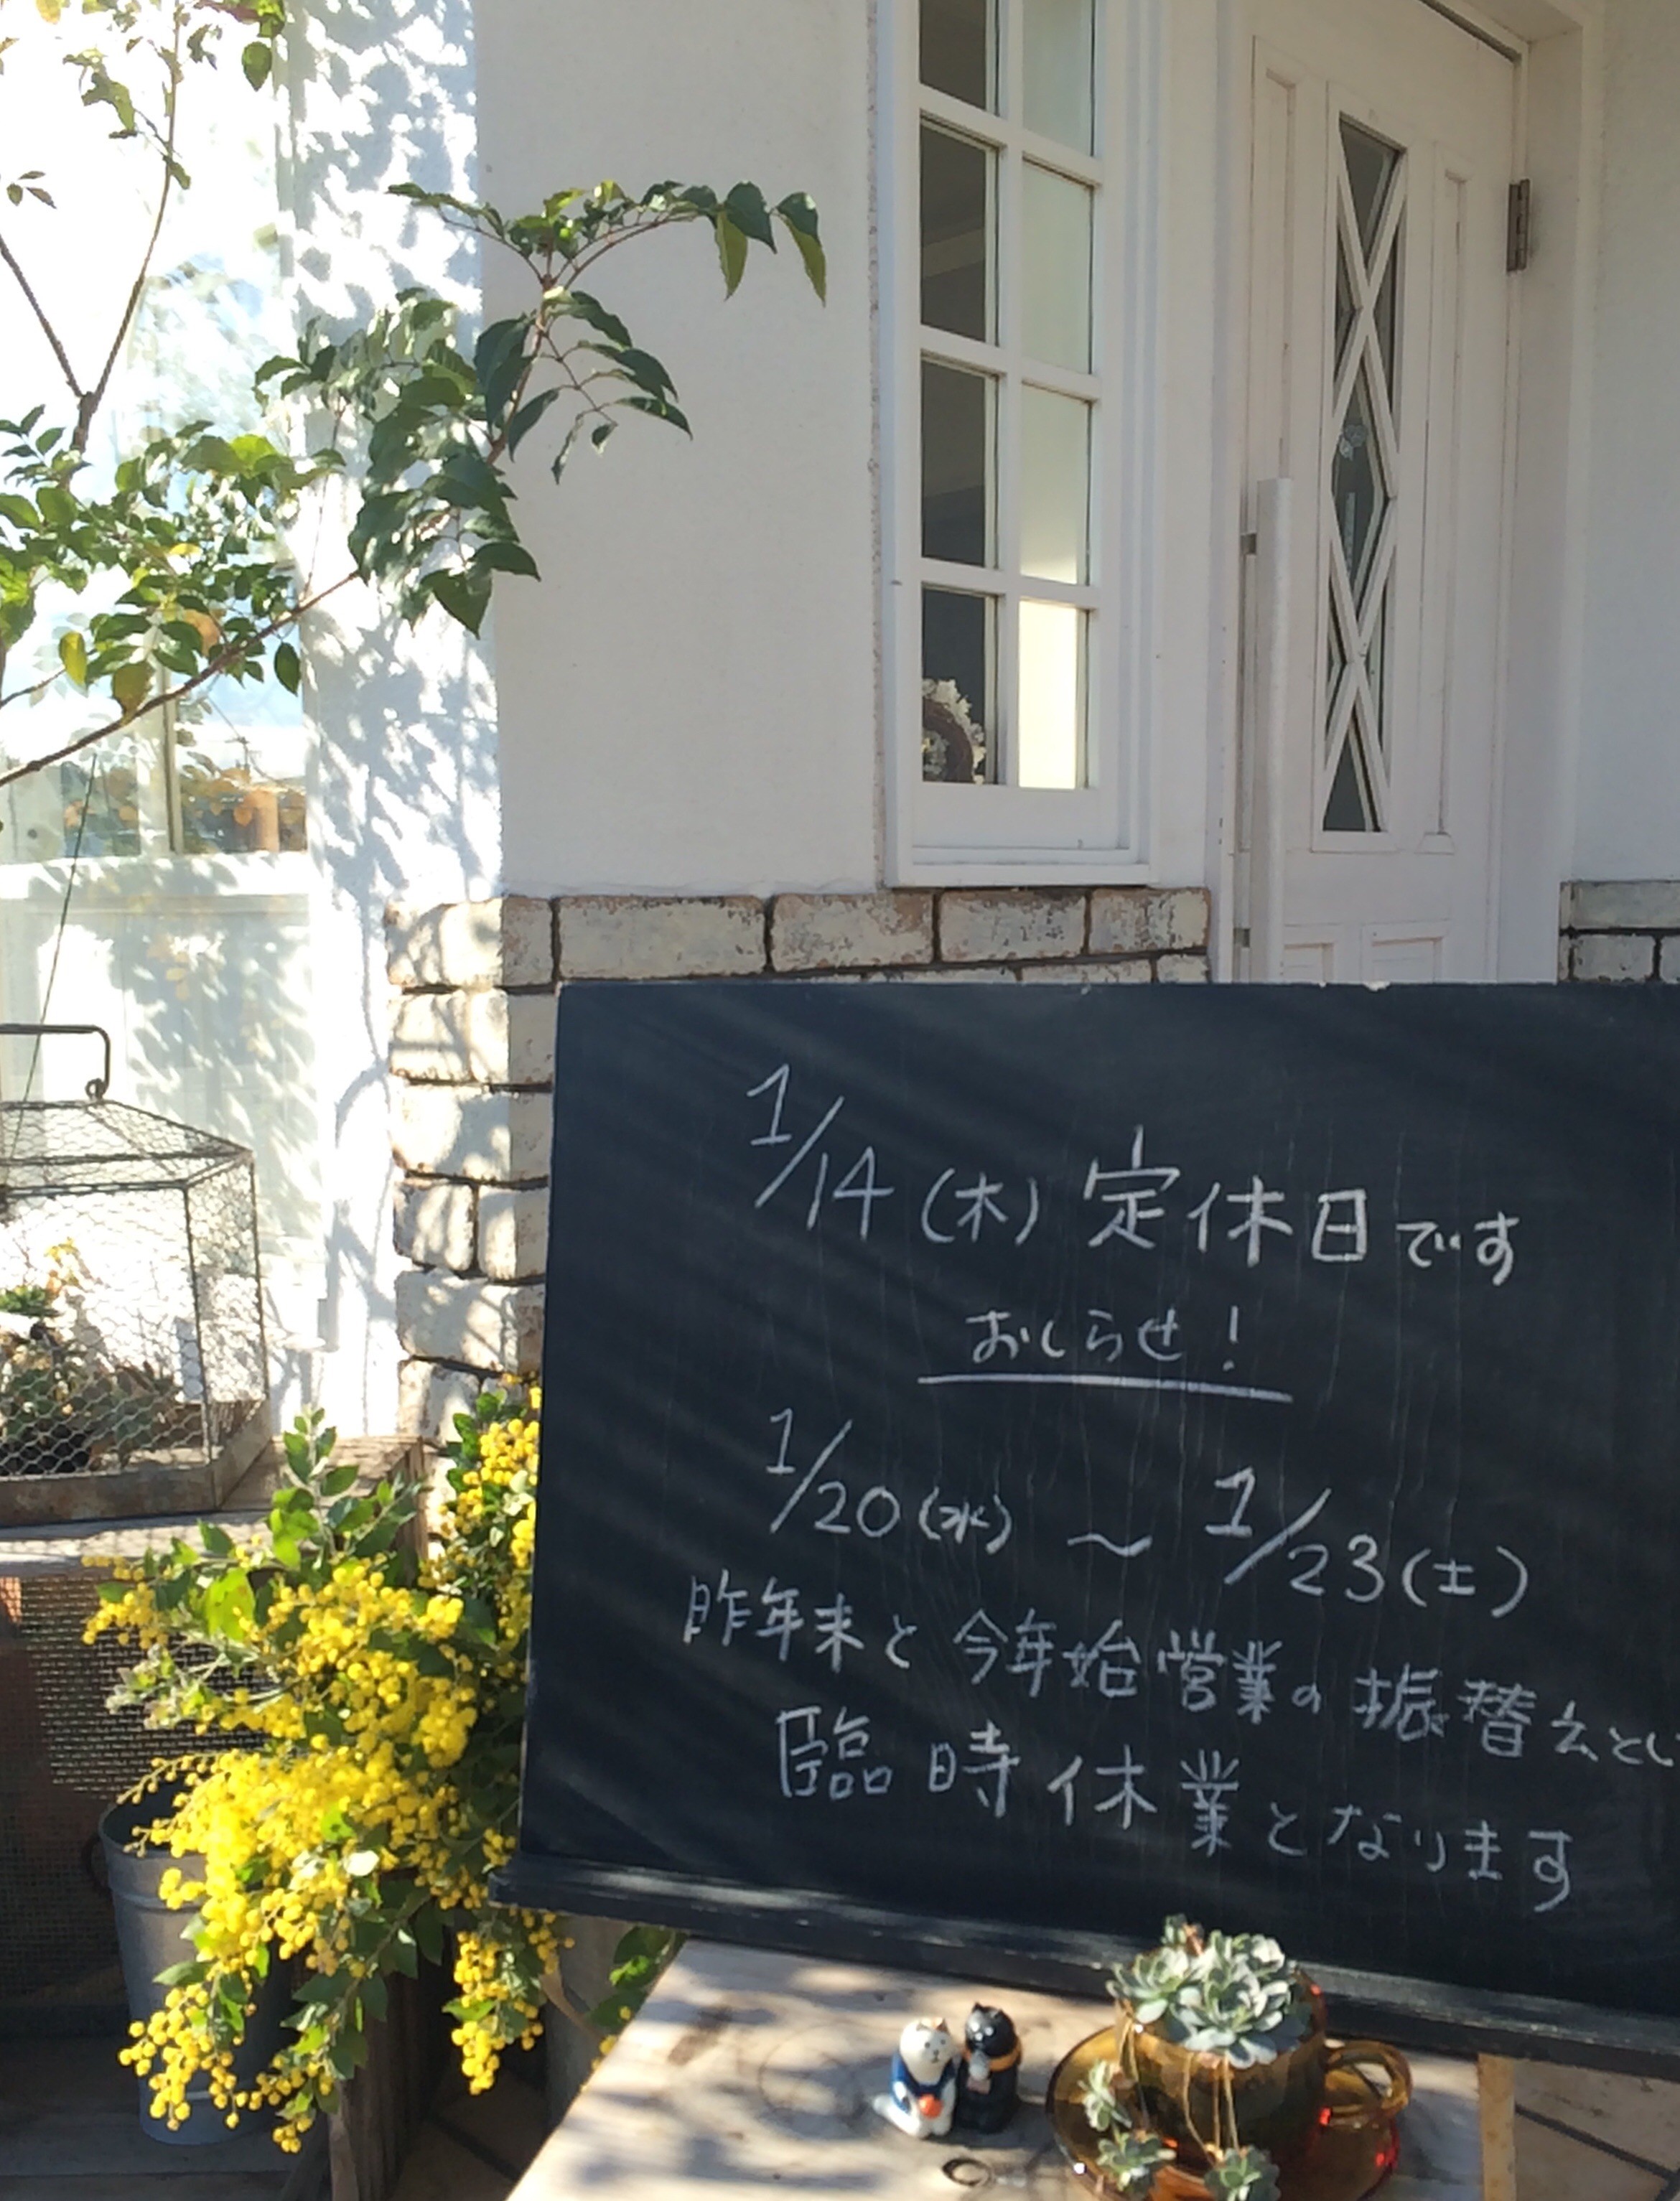 1/14(木)定休日です
おしらせ!
1/20(水)~1/23(土)
昨年末と今年始営業の振替えとし
臨時休業となります